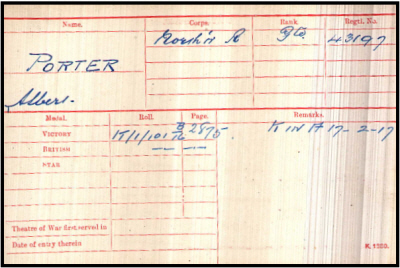 Name. Corps. Rank. Regtl. No.
North'n R Pte. 43197
PORTER
Albert.
Medal. Roll. Page. Remarks.
VICTORY K/1/101 B 2875. K in A 17-2-17
BRITISH —"— —"—
STAR
Theatre of War first served in
Date of entry therein
K. 1380.